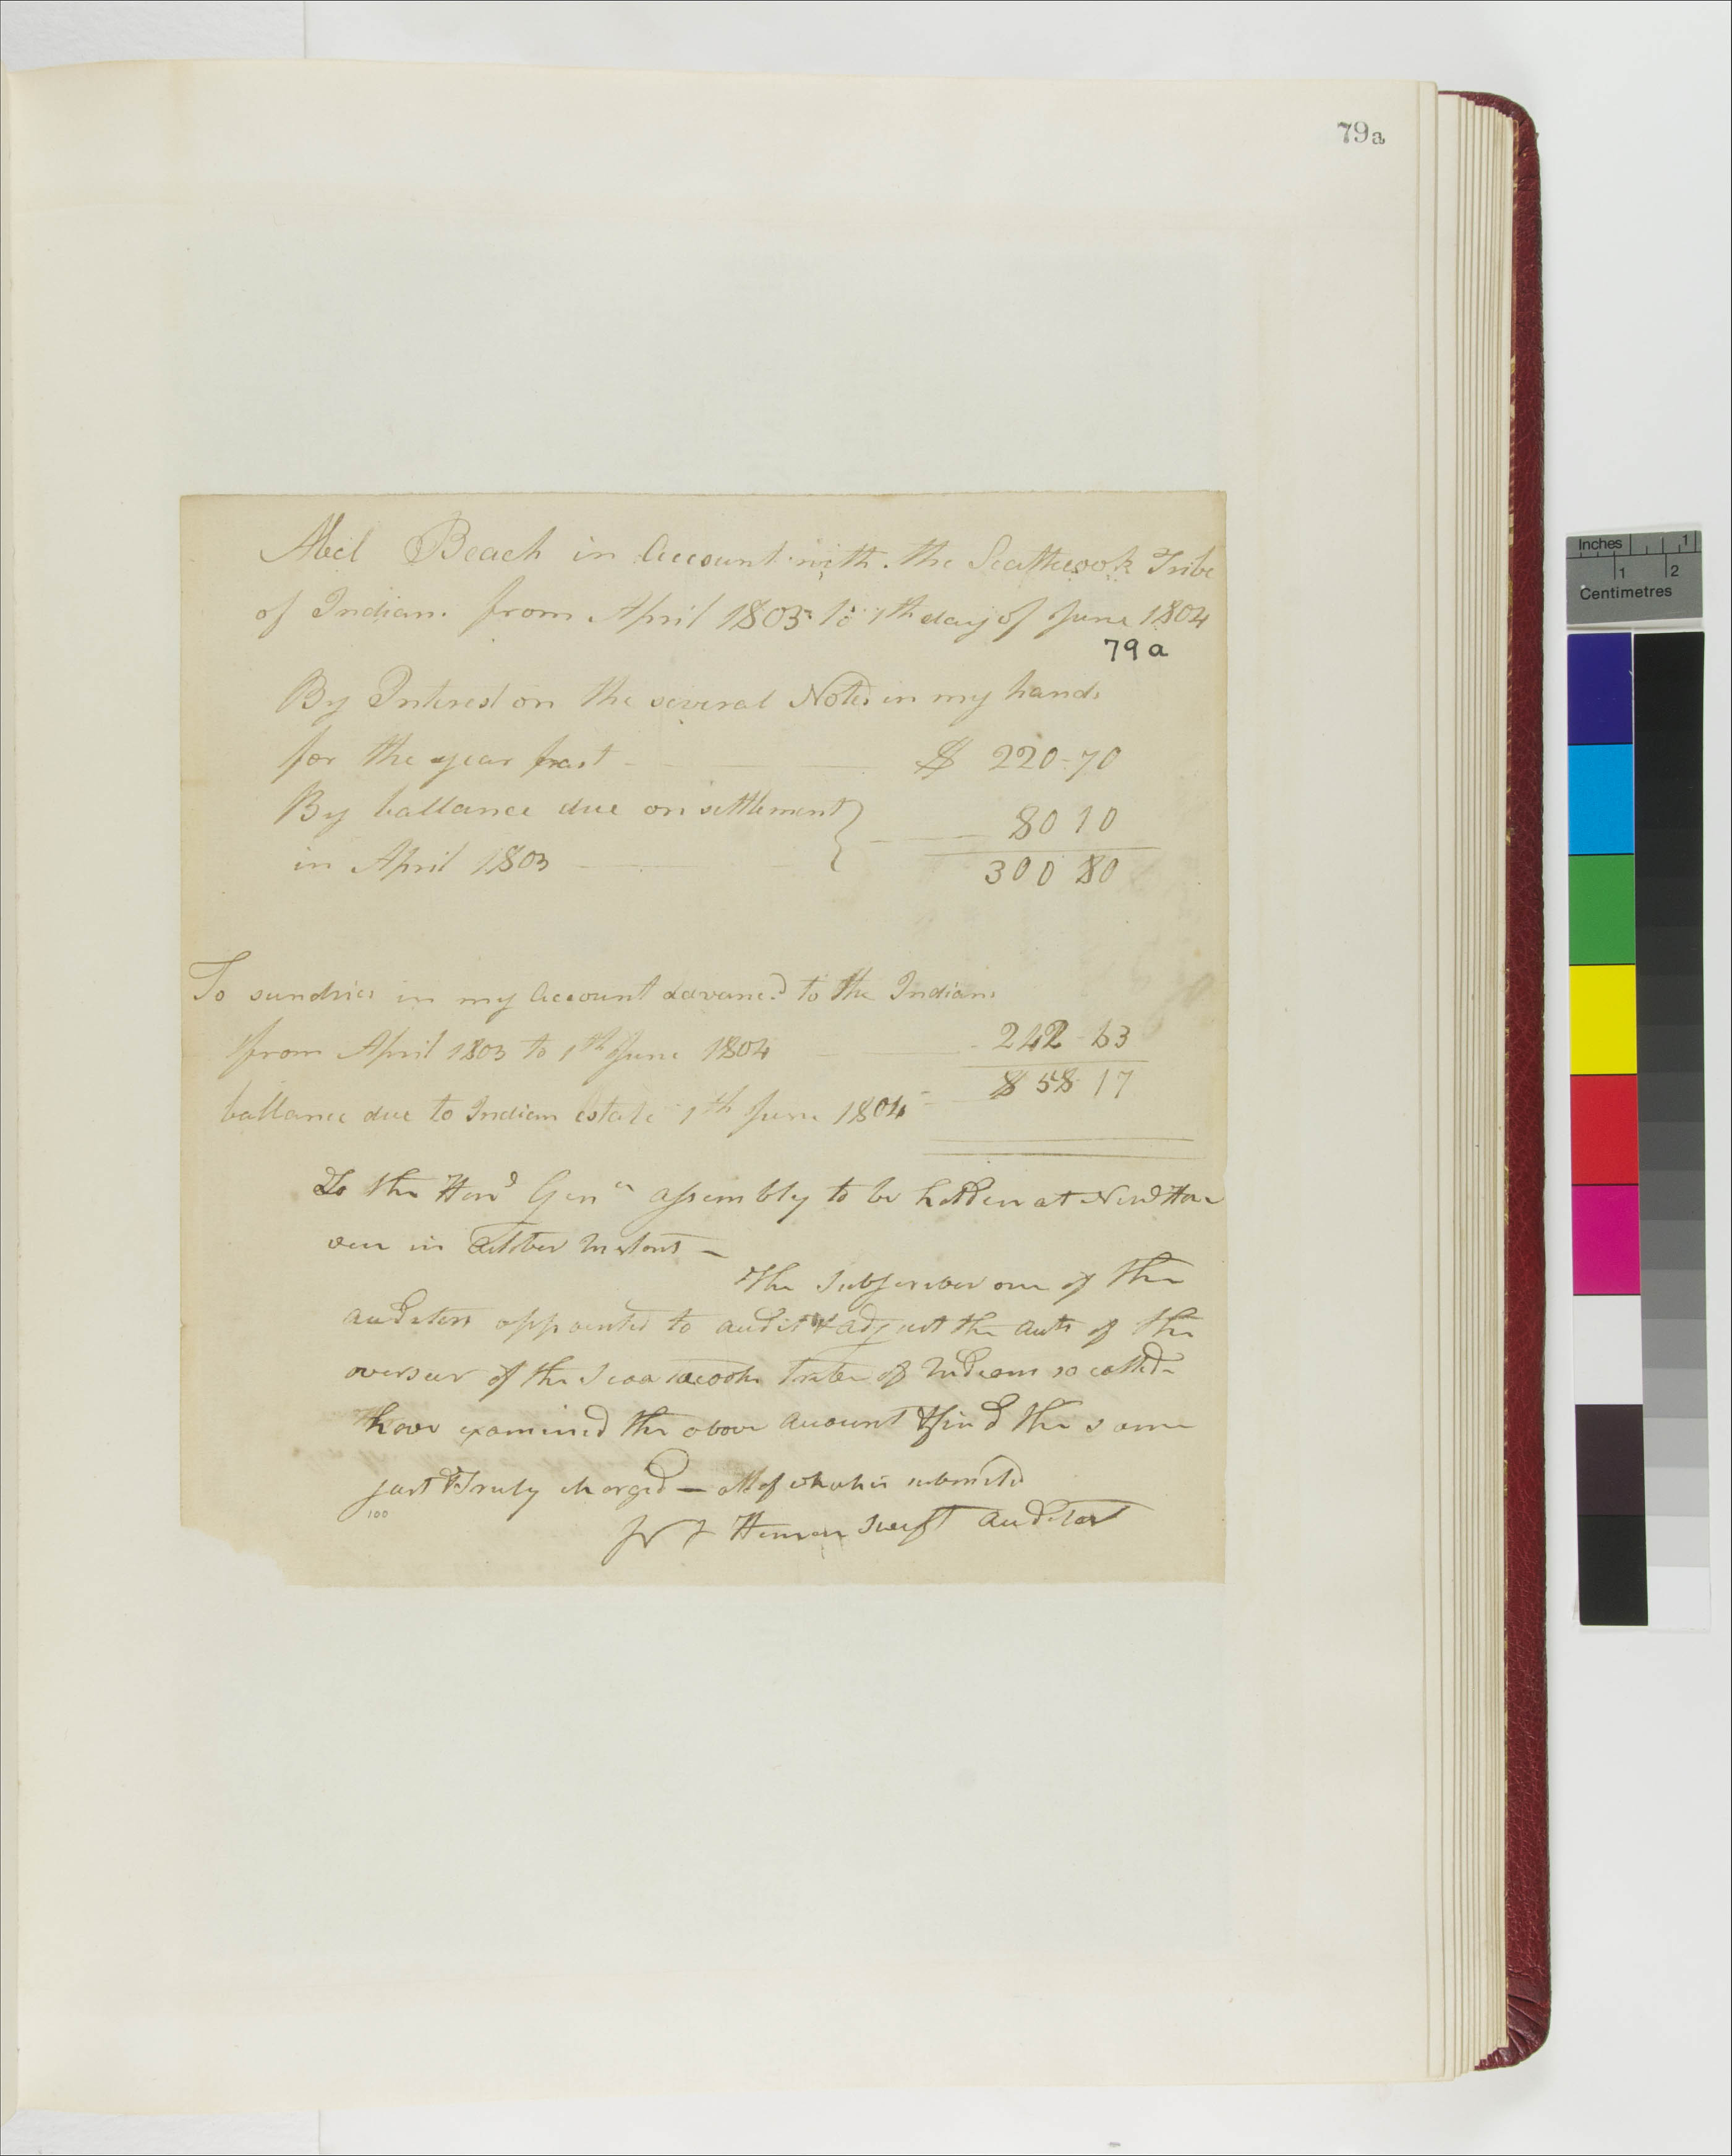 79a
Abel Beach in Account with the Scatticook Tribe
of Indians from April 1803 to 1th day of June 1804
79 a
By Interest on the several Notes in my hands
for the year past $ 220-70
By ballance due on settlement } 80 10
in April 1803
300 80
To sundries in my Account advancd to the Indians
from April 1803 to 1th June 1804 242-63
$ 58 17
ballance due to Indian estate 1th June 1804
To the Hond Genll assembly to be holden at New Ha
ven in october Instant –
The Subscriber one of the
auditors appointed to audit & adjust the auts of the
overseer of the Scaatacook Tribe of Indians so called
have examined the above account & find the same
just & Truly charged – all of which is submitted
Heman Swift auditor
100
Inches 1
1 2
Centimetres